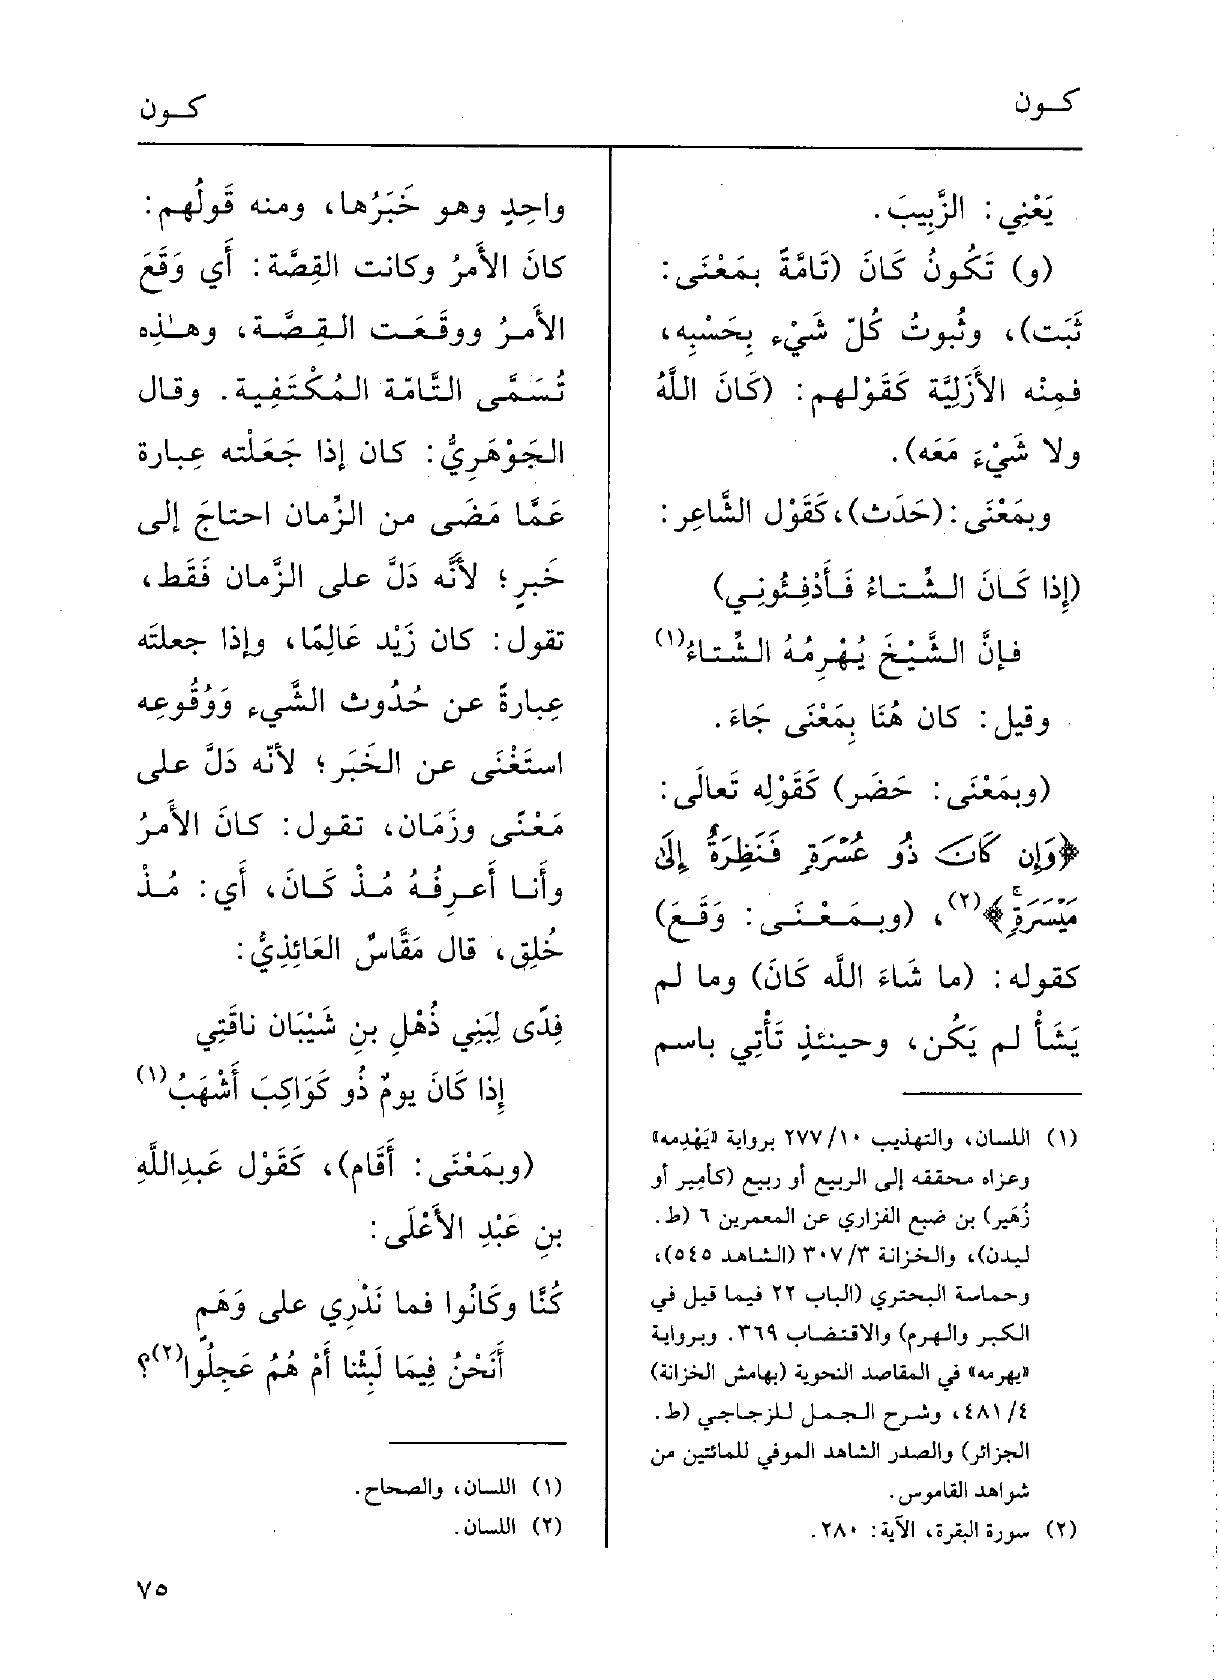 كـون
كـون
يَعْنِي: الزَّبِيبَ.
(و) تَكُونُ كَانَ (تَامَّةً بمَعْنَى:
ثَبَت)، وثُبوتُ كُلّ شَيْءٍ بِحَسْبِه،
فمِنْه الأَزَلِيَّة كَقَوْلهم: (كَانَ اللَّهُ
ولا شَيْءَ مَعَه).
وبمَعْنَى: (حَدَث)، كَقَوْل الشَّاعِر:
(إِذا كَـانَ الـشِّـتـاءُ فَـأَدْفِـئُونِـي)
فإِنَّ الـشَّـيْـخَ يُـهْـرِمُـهُ الـشِّـتاءُ(١)
وقيل: كان هُنَا بِمَعْنى جَاءَ.
(وبمَعْنَى: حَضَر) كَقَوْلِه تَعالَى:
﴿وَإِن كَانَ ذُو عُسْرَةٍ فَنَظِرَةٌ إِلَىٰ
مَيْسَرَةٍ﴾(٢)، (وبـمَـعْـنَـى: وَقَـعَ)
كقوله: (ما شَاءَ اللَّه كَانَ) وما لم
يَشَأْ لم يَكُن، وحينئذٍ تَأْتِي باسم
(١) اللسان، والتهذيب ٢٧٧/١٠ برواية «يَهْدِمه»
وعزاه محققه إلى الربيع أو ربيع (كأَمِير أو
زُهَير) بن ضبع الفزاري عن المعمرين ٦ (ط.
ليدن)، والخزانة ٣٠٧/٣ (الشاهد ٥٤٥)،
وحماسة البحتري (الباب ٢٢ فيما قيل في
الكبر والهرم) والاقتضاب ٣٦٩. وبرواية
«يهرمه» في المقاصد النحوية (بهامش الخزانة)
٤٨١/٤، وشرح الجمل للزجاجي (ط.
الجزائر) والصدر الشاهد الموفي للمائتين من
شواهد القاموس.
(٢) سورة البقرة، الآية: ٢٨٠.
واحِدٍ وهو خَبَرُها، ومنه قَولُهم:
كانَ الأَمرُ وكانت القِصَّة: أَي وَقَعَ
الأَمـرُ ووقَـعَـت الـقِـصَّـة، وهـٰذِه
تُسَمَّى التَّامّة المُكْتَفِية. وقال
الجَوْهَرِيُّ: كان إِذا جَعَلْته عِبارة
عَمَّا مَضَى من الزَّمان احتاجَ إلى
خَبرٍ؛ لأَنَّه دَلَّ على الزَّمان فَقَط،
تقول: كان زَيْد عَالِمًا، وإِذا جعلتَه
عِبارةً عن حُدُوث الشَّيء وَوُقُوعِه
استَغْنَى عن الخَبَر؛ لأَنّه دَلَّ على
مَعْنًى وزَمَان، تقول: كانَ الأَمرُ
وأَنـا أَعـرِفُـهُ مُـذْ كَـانَ، أَي: مُـذْ
خُلِق، قال مَقَّاسٌ العَائِذِيُّ:
فِدًى لِبَنِي ذُهْلِ بنِ شَيْبَان ناقَتِي
إِذا كَانَ يومٌ ذو كَوَاكِبَ أَشْهَبُ(١)
(وبمَعْنَى: أَقَام)، كَقَوْل عَبداللَّهِ
بنِ عَبْدِ الأَعْلَى:
كُنَّا وكَانُوا فما نَدْرِي على وَهَم
أَنَحْنُ فِيمَا لَبِثْنا أَمْ هُمُ عَجِلُوا(٢)؟
(١) اللسان، والصحاح.
(٢) اللسان.
٧٥